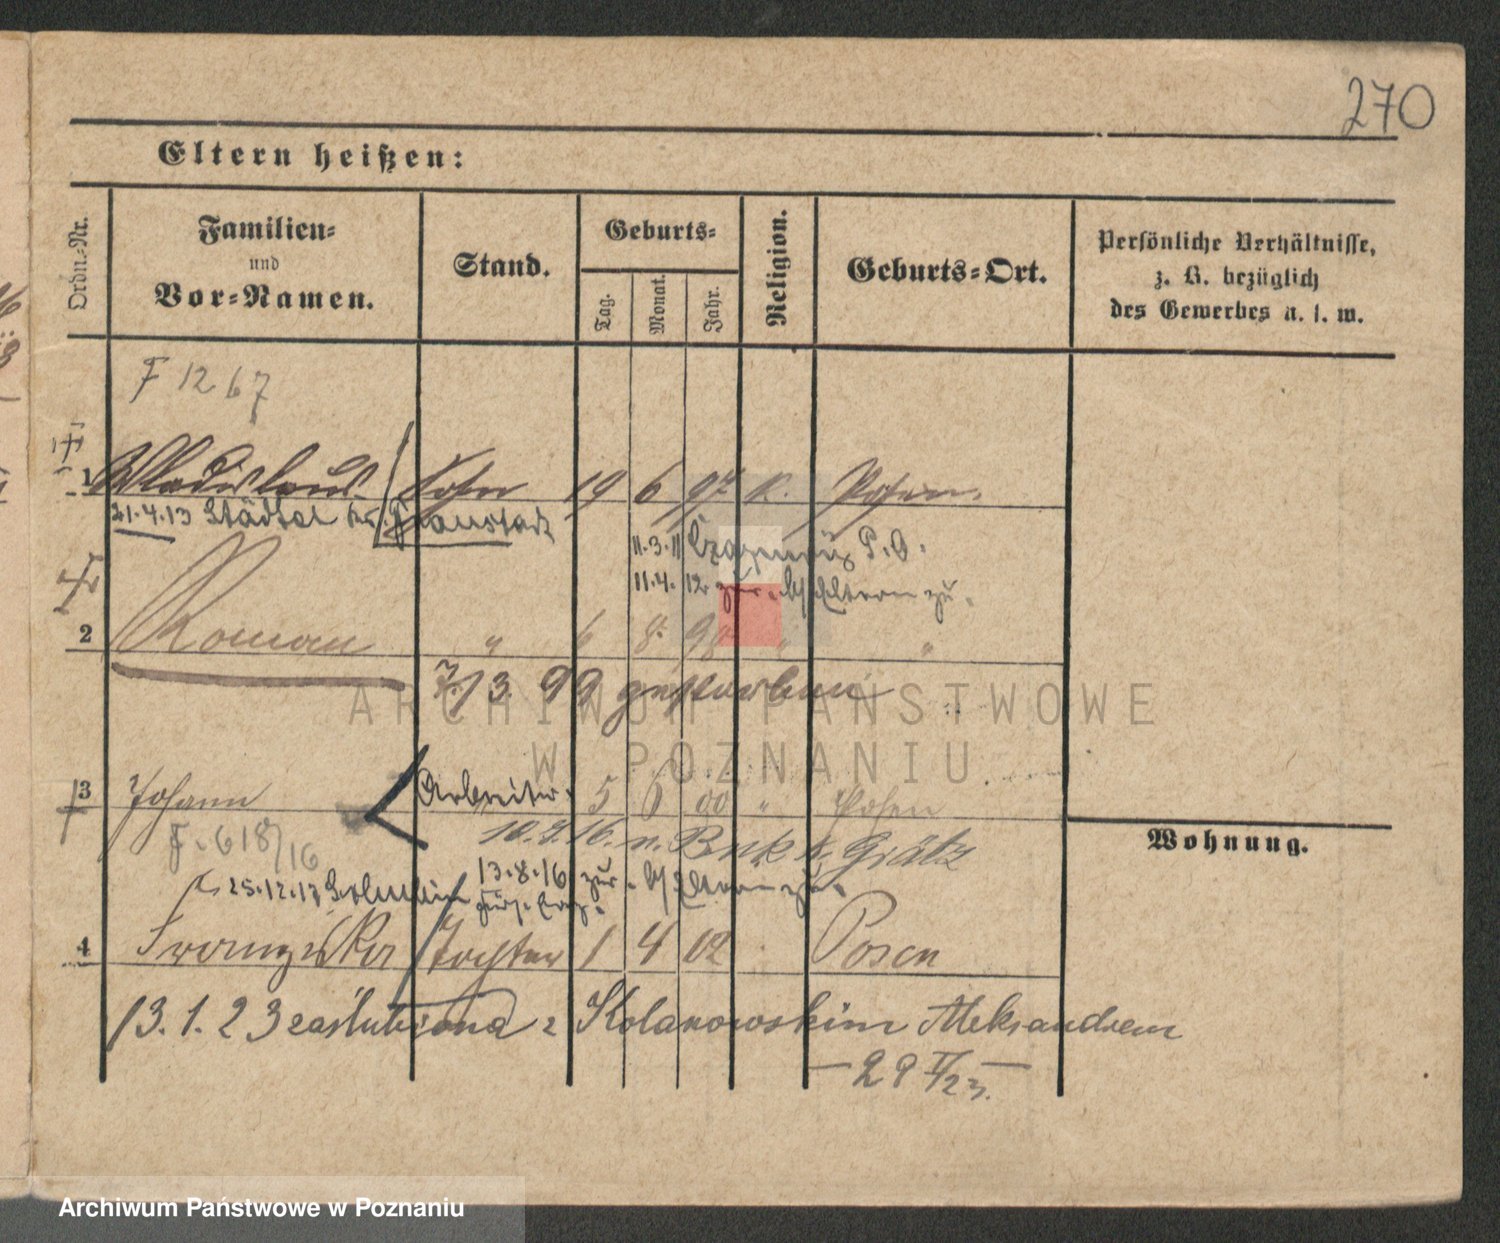 270
Eltern heißen:
Ordn.-Nr.
Familien-
und
Vor-Namen.
Stand.
Geburts-
Tag.
Monat.
Jahr.
Religion.
Geburts-Ort.
Persönliche Verhältnisse,
z. B. bezüglich
des Gewerbes u. s. w.
F 1267
1 Wladislaus Sohn 19 6 97 k. Posen.
21.4.13 Städtel Kr. Fraustadt
11.3.11 P.O.
11.4.12 zur. b/ Eltern zu.
2 Roman " 6 8. 98 " "
7/3. 99 gestorben
3 Johann Arbeiter 5 6 00 " Posen
F. 618/16 10.2.16. n. Buk k. Grätz
25.12.13 13.8.16 zur. b/ Eltern zu.
4 Franziska Tochter 1 4 02 Posen
13.1.23 zaślubiona z Kolanowskim Aleksandrem
— 29 I/23. —
Wohnung.
ARCHIWUM PAŃSTWOWE
W POZNANIU
Archiwum Państwowe w Poznaniu